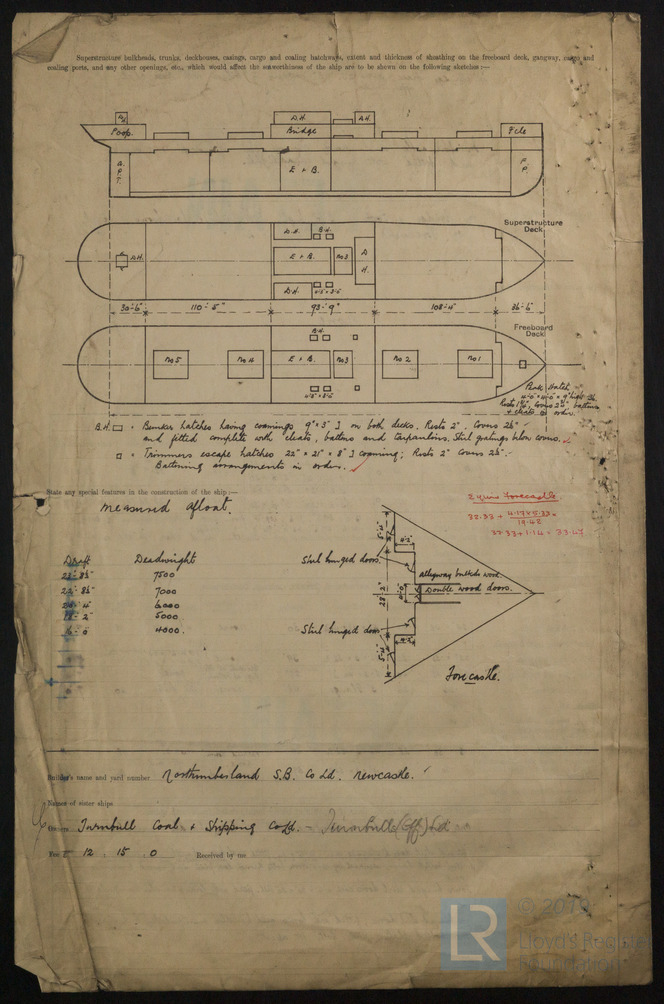 Superstructure bulkheads, trunks, deckhouses, casings, cargo and coaling hatchways, extent and thickness of sheathing on the freeboard deck, gangway, cargo and
coaling ports, and any other openings, etc., which would affect the seaworthiness of the ship are to be shown on the following sketches:—
D.H. D.H.
Poop. Bridge Fcle
A.P.T. E + B. F.P.
Superstructure
Deck
D.H. B.H.
D.H. E + B. No 3 D.H.
D.H. 4'.5" × 3'.6"
30'-6" 110'-5" 93'-9" 108'-4" 36'-6"
Freeboard
Deck
B.H.
No 5 No 4 E + B. No 3 No 2 No 1
4'.5" × 3'.6"
Peak Hatch
Rests 1¾", Covers 2½" battens
+ cleats in order.
B.H. = Bunker hatches having coamings 9" × 3" ] on both decks. Rests 2". Covers 2½"
and fitted complete with cleats, battens and tarpaulins. Steel gratings below covers.
= Trimmers escape hatches 22" × 21" × 8" ] coaming; Rests 2" Covers 2½".
Battening arrangements in order.
State any special features in the construction of the ship:—
measured afloat.
2 equiv Forecastle.
32.33 + 4.17×5.33×
19.42
32.33 + 1.14 = 33.47
Draft Deadweight
7500
7000
6000
5000
4000.
Steel hinged doors
alleyway bulkhds wood.
Double wood doors.
5'-4" 4'-2" 28'-2"
Steel hinged doors
4'-2" 5'-4"
Forecastle.
Builder's name and yard number Northumberland S.B. Co Ld. Newcastle.
Names of sister ships
Owners Turnbull Coal + Shipping Co Ld. - Turnbulls (Cff) Ltd
Fee £ 12 : 15 : 0 Received by me
LR
© 2019
Lloyd's Register
Foundation